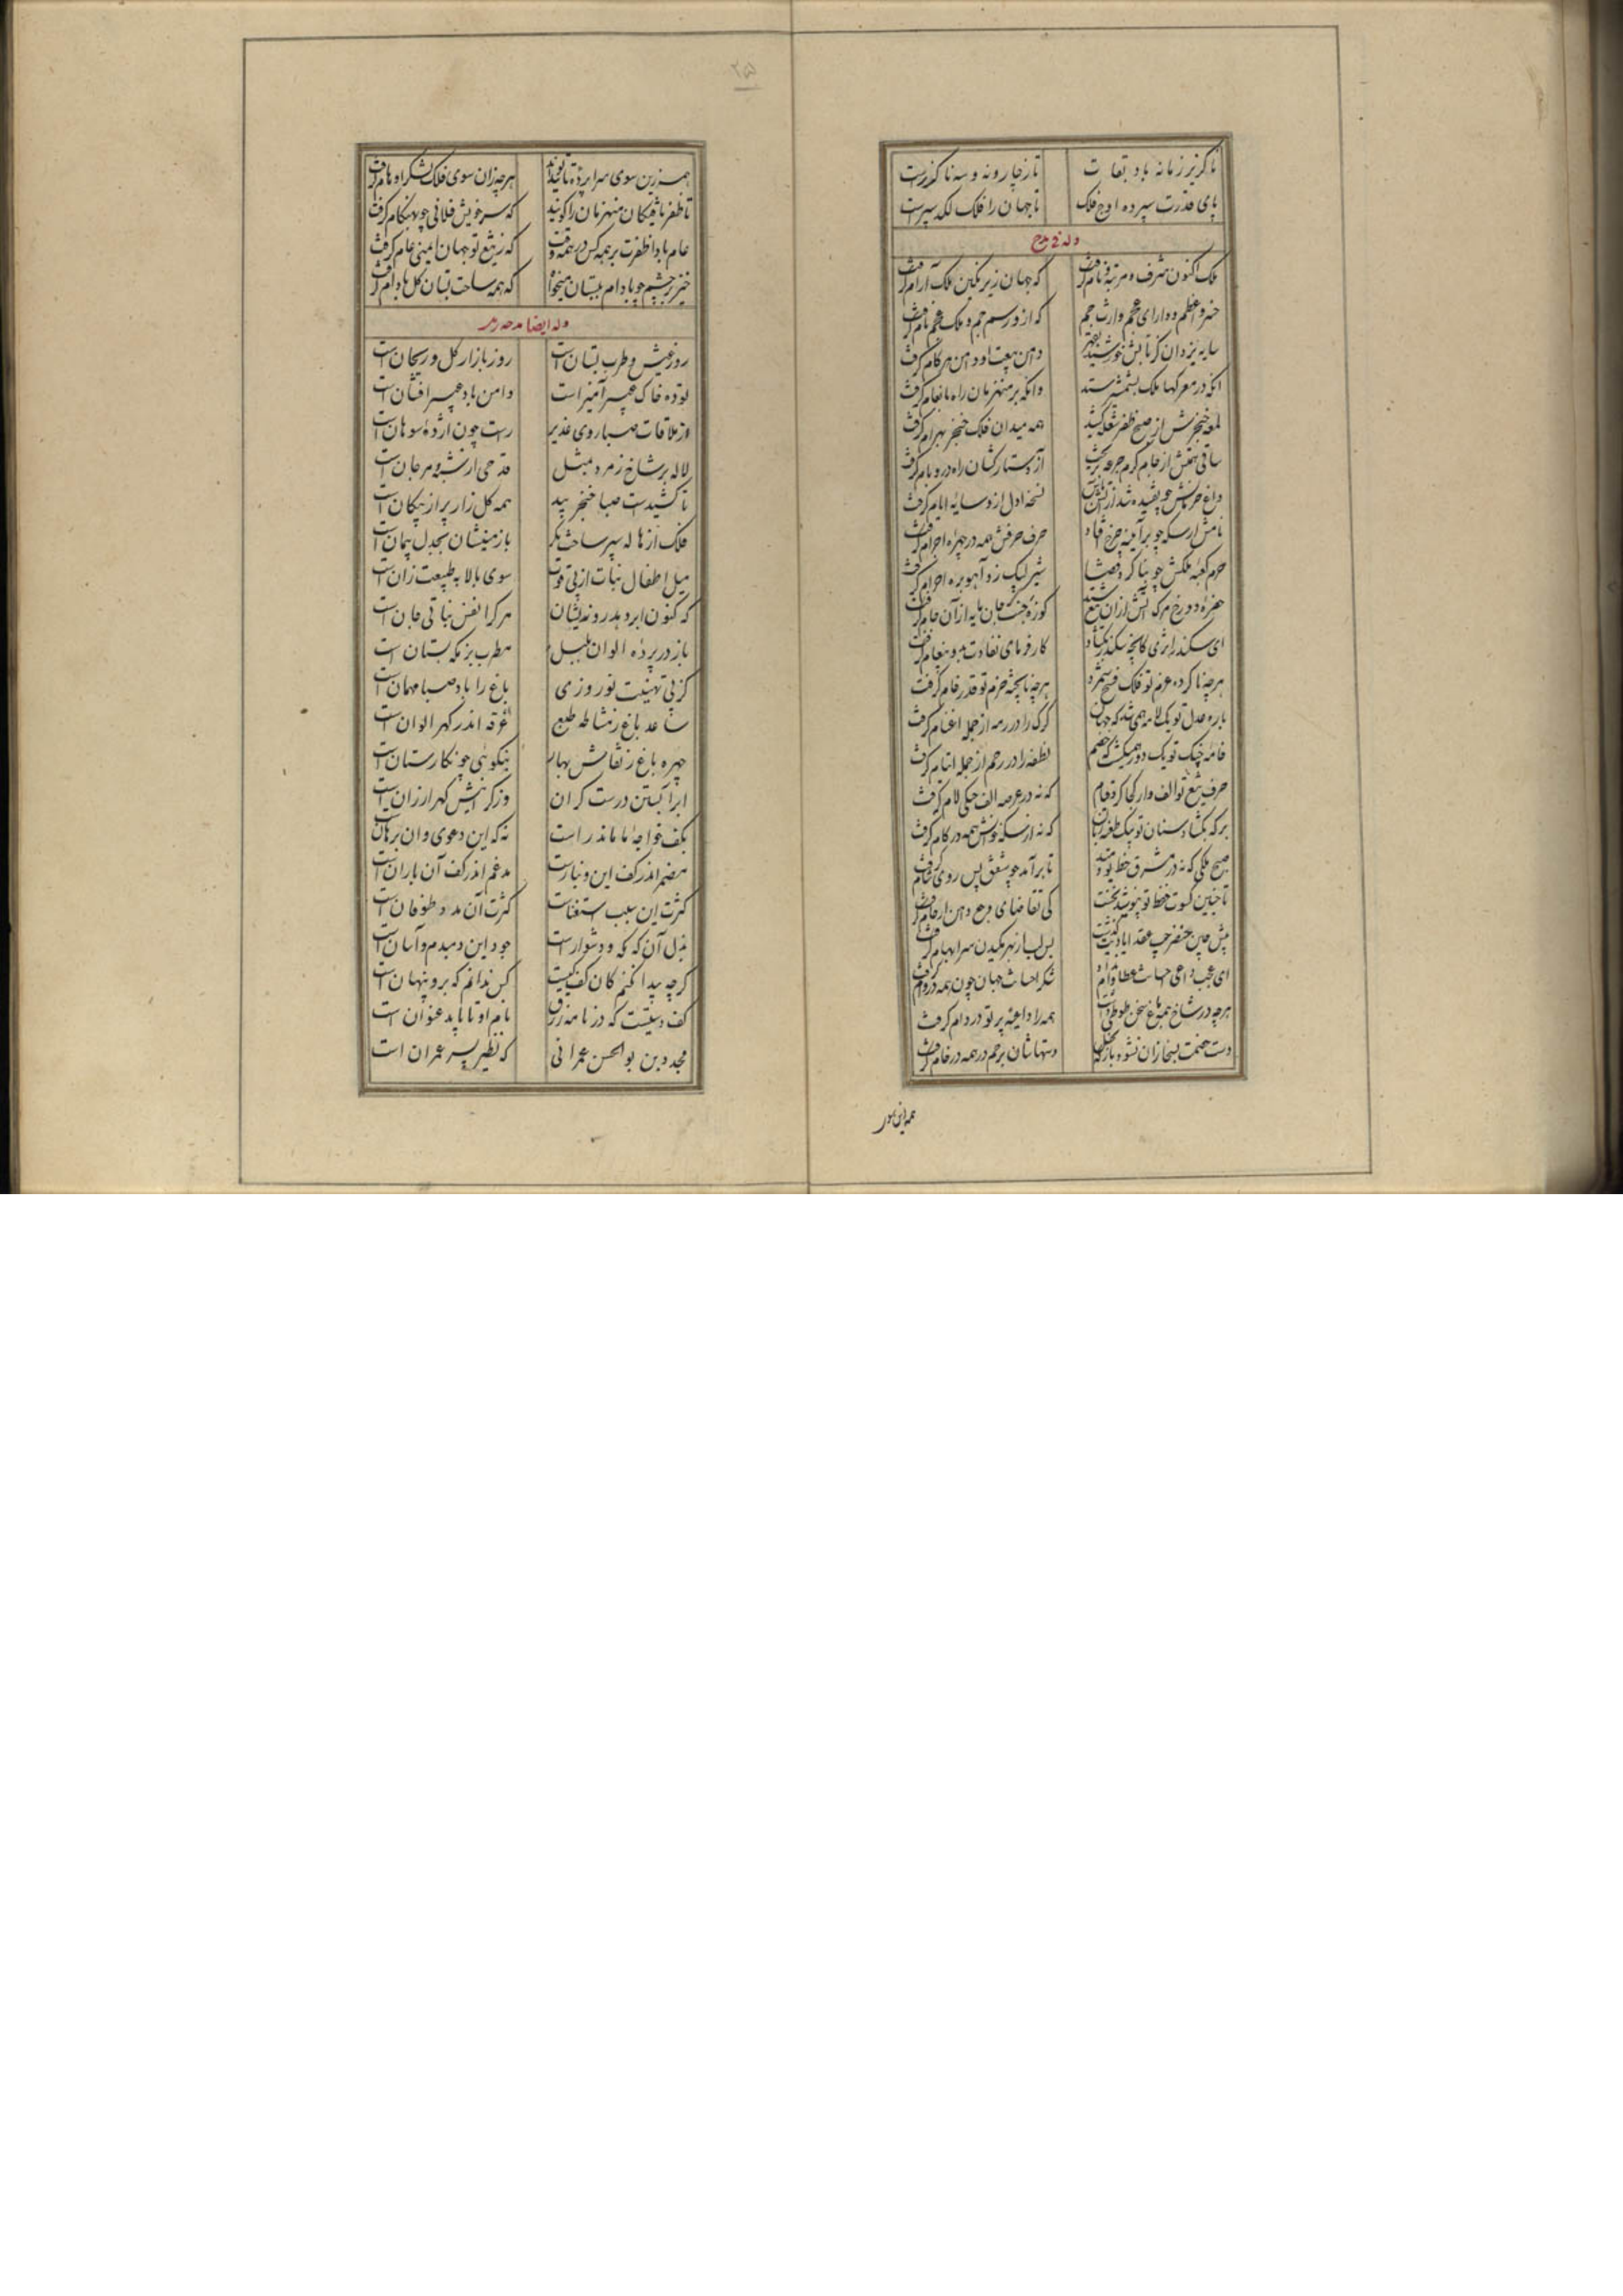 ناگزیر زمانه باد بقات تا ز چار و نه و سه ناگذرست
پای قدرت سپرده اوج فلک تا جهان را فلک لگد سپرست
وله فی مدح
ملک اکنون شرف و مرتبه و نام گرفت که جهان زیر نگین ملک آرام گرفت
خسرو اعظم و دارای عجم وارث جم که ازو رسم جم و ملک عجم نام گرفت
سایه یزدان کز تابش خورشید دامن بیعت او دامن هر کام گرفت
آنکه در معرکها ملک بشمشیر ستد وانکه بر منهزمان راه بانعام گرفت
لمعه خنجرش از صبح ظفر شعله کشید همه میدان فلک خنجر بهرام گرفت
ساقی همتش از جام کرم جرعه بریخت آز دستارکشان راه در و بام گرفت
داغ فرمانش چو تفسیده شد از آتش نسخه اول ازو سایه ایام گرفت
نامش از سکه چو بر آینه چرخ فتاد حرف حرفش همه در چهره اجرام گرفت
حرم کعبه ملکش چو بنا کرد قضا شیر لبیک زد آهو بره احرام گرفت
کوزه جنت جان مایه از آن جام گرفت
ای سکندر اثری کانچه سکندر بگشاد کارفرمای نفاذت به دو پیغام گرفت
هرچه ناکرده عزم تو فلک فسخ شمرد هرچه نابخته حزم تو قدر خام گرفت
باره عدل تو یک لایه همی‌شد که جهان گرگ را در رمه از جمله اغنام گرفت
خامه جنگ تو یک دور همی‌گشت که خصم نطفه را در رحم از جمله ایتام گرفت
حرف تیغ تو الف وار کجا کرد قیام که نه در عرصه الف خفتگی لام گرفت
بر که بگشاد سنان تو به یک طعنه زبان که نه از سکنه خونش همه در کام گرفت
صبح ملکی که نه در مشرق حفظ تو دمید تا برآمد چو شفق پس روی شام گرفت
تا جنین کسوت حفظ تو نپوشید نخست کی تقاضای رحم دامن ارحام گرفت
پس لب از بهر مکیدن سر ابهام گرفت
ای عجب داعی احسانت عطا وام شکر احسانت جهان چون همه در وام گرفت
هرچه در شاخ همه باغ سخن طوطی داشت همه را داعیه بر تو در دام گرفت
دست خصمت بسخا زان نشود باز دستهاشان برحم در همه در خام گرفت
همه زین سوی
همه زین سوی سراپرده تایید هرچه زان سوی فلک لشکر اوهام گرفت
تا ظفرنایفگان منهزمان را گویند که سر خویش فلانی چو بهنگام گرفت
عام بادا ظفرت بر همه کس در همه وقت که ز تیغ تو جهان ایمنی عام گرفت
چشم چو بادام که همه ساحت بستان گل بادام گرفت
وله ایضا
روز عیش و طرب بستان است روز بازار گل و ریحان است
توده خاک عبیرآمیز است دامن باد عبیرافشان است
وز ملاقات صبا روی غدیر راست چون آژده سوهان است
لاله بر شاخ زمرد بمثل قدحی از شبه و مرجان است
تا کشیدست صبا خنجر بید همه گلزار پر از پیکان است
فلک از هاله سپر ساخت مگر با زمینشان بجدل پیمان است
میل اطفال نبات از پی قوت سوی بالا به طبیعت زان است
که کنون ابر دهد روزیشان هر کرا نفس نباتی جان است
باز در پرده الوان بلبل مطرب بزمگه بستان است
کز پی تهنیت نوروزی باغ را باد صبا مهمان است
ساعد باغ ز مشاطه طبع غرقه اندر گهر الوان است
چهره باغ ز نقاش بهار بنکویی چو نگارستان است
ابر آبستن درست گران وز گرانیش گهر ارزان است
بکف خواجه ما ماندر است نه که این دعوی و آن برهان است
مضمر اندر کف این دینارست مدغم اندر کف آن باران است
کثرت این سبب استغناست کثرت آن مدد طوفان است
بذل آن گه گه و دشوار است جود این دمبدم و آسان است
گرچه پیدا نکنم کان کف کیست کس ندانم که برو پنهان است
کف دستیست که در نامه رزق نام او تا بابد عنوان است
مجد دین بوالحسن عمرانی که نظیر پسر عمران است
۲۵